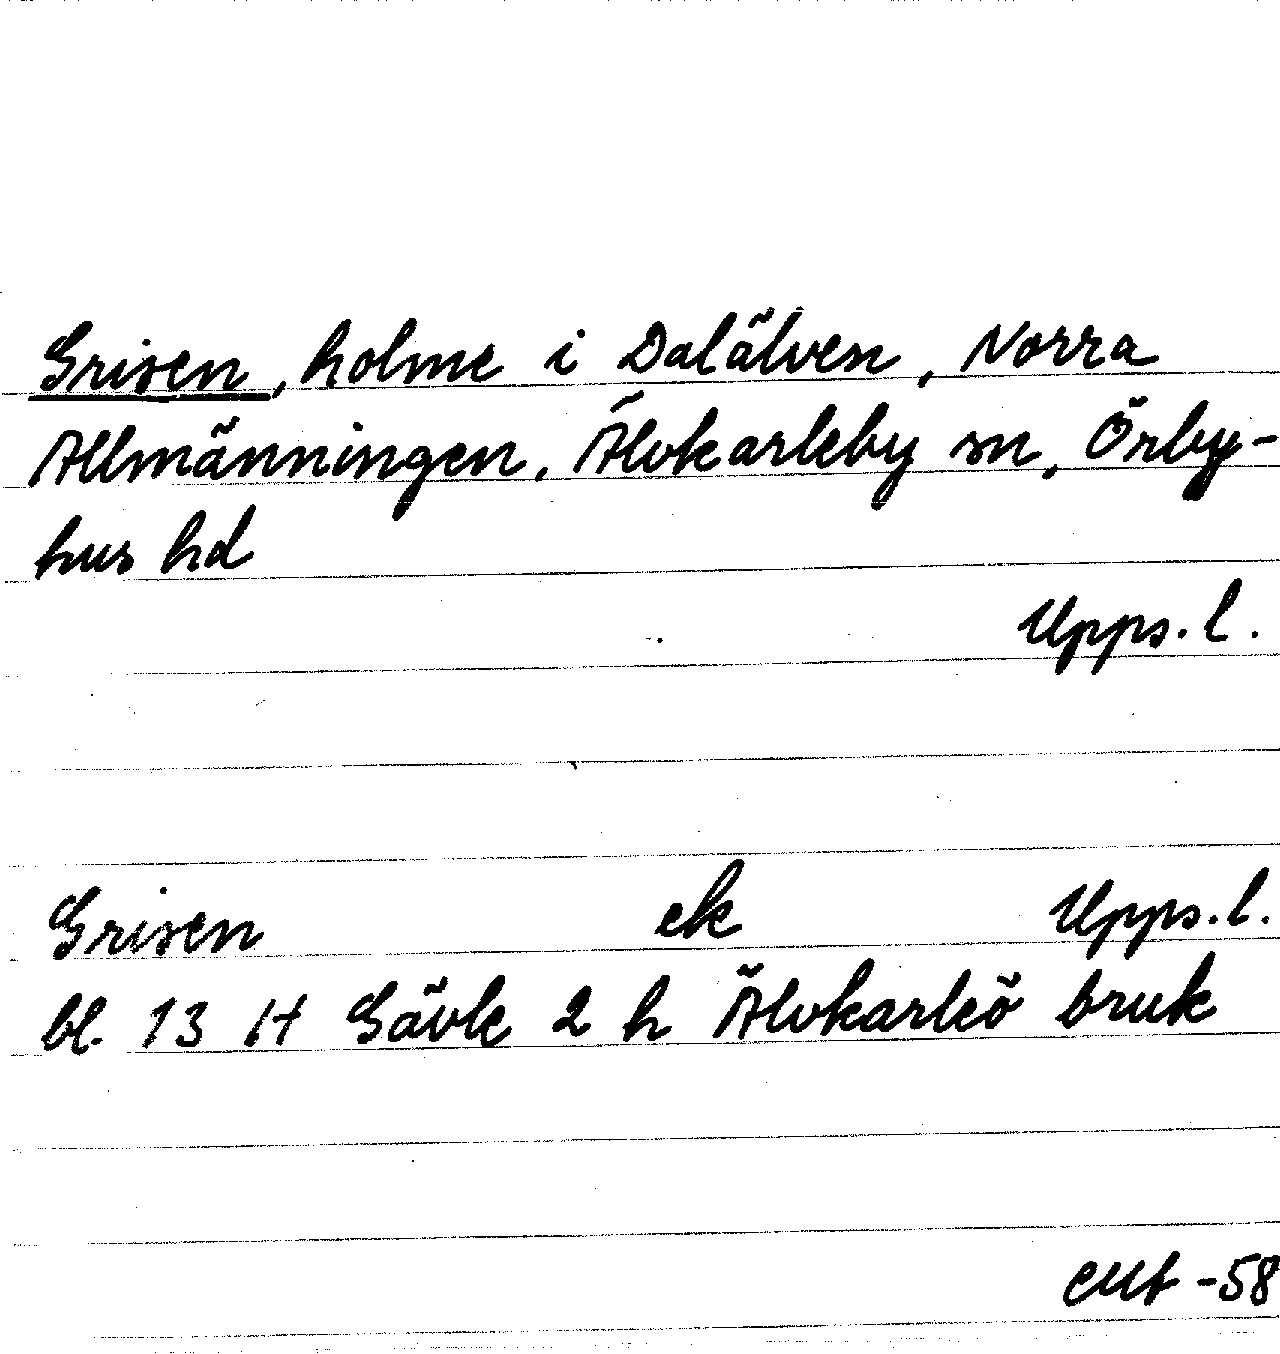 Grisen, holme i Dalälven, Norra
Allmänningen, Älvkarleby sn, Örby-
hus hd
Upps. l.
Grisen ek Upps. l.
bl. 13 H Gävle 2 h Älvkarleö bruk
-58